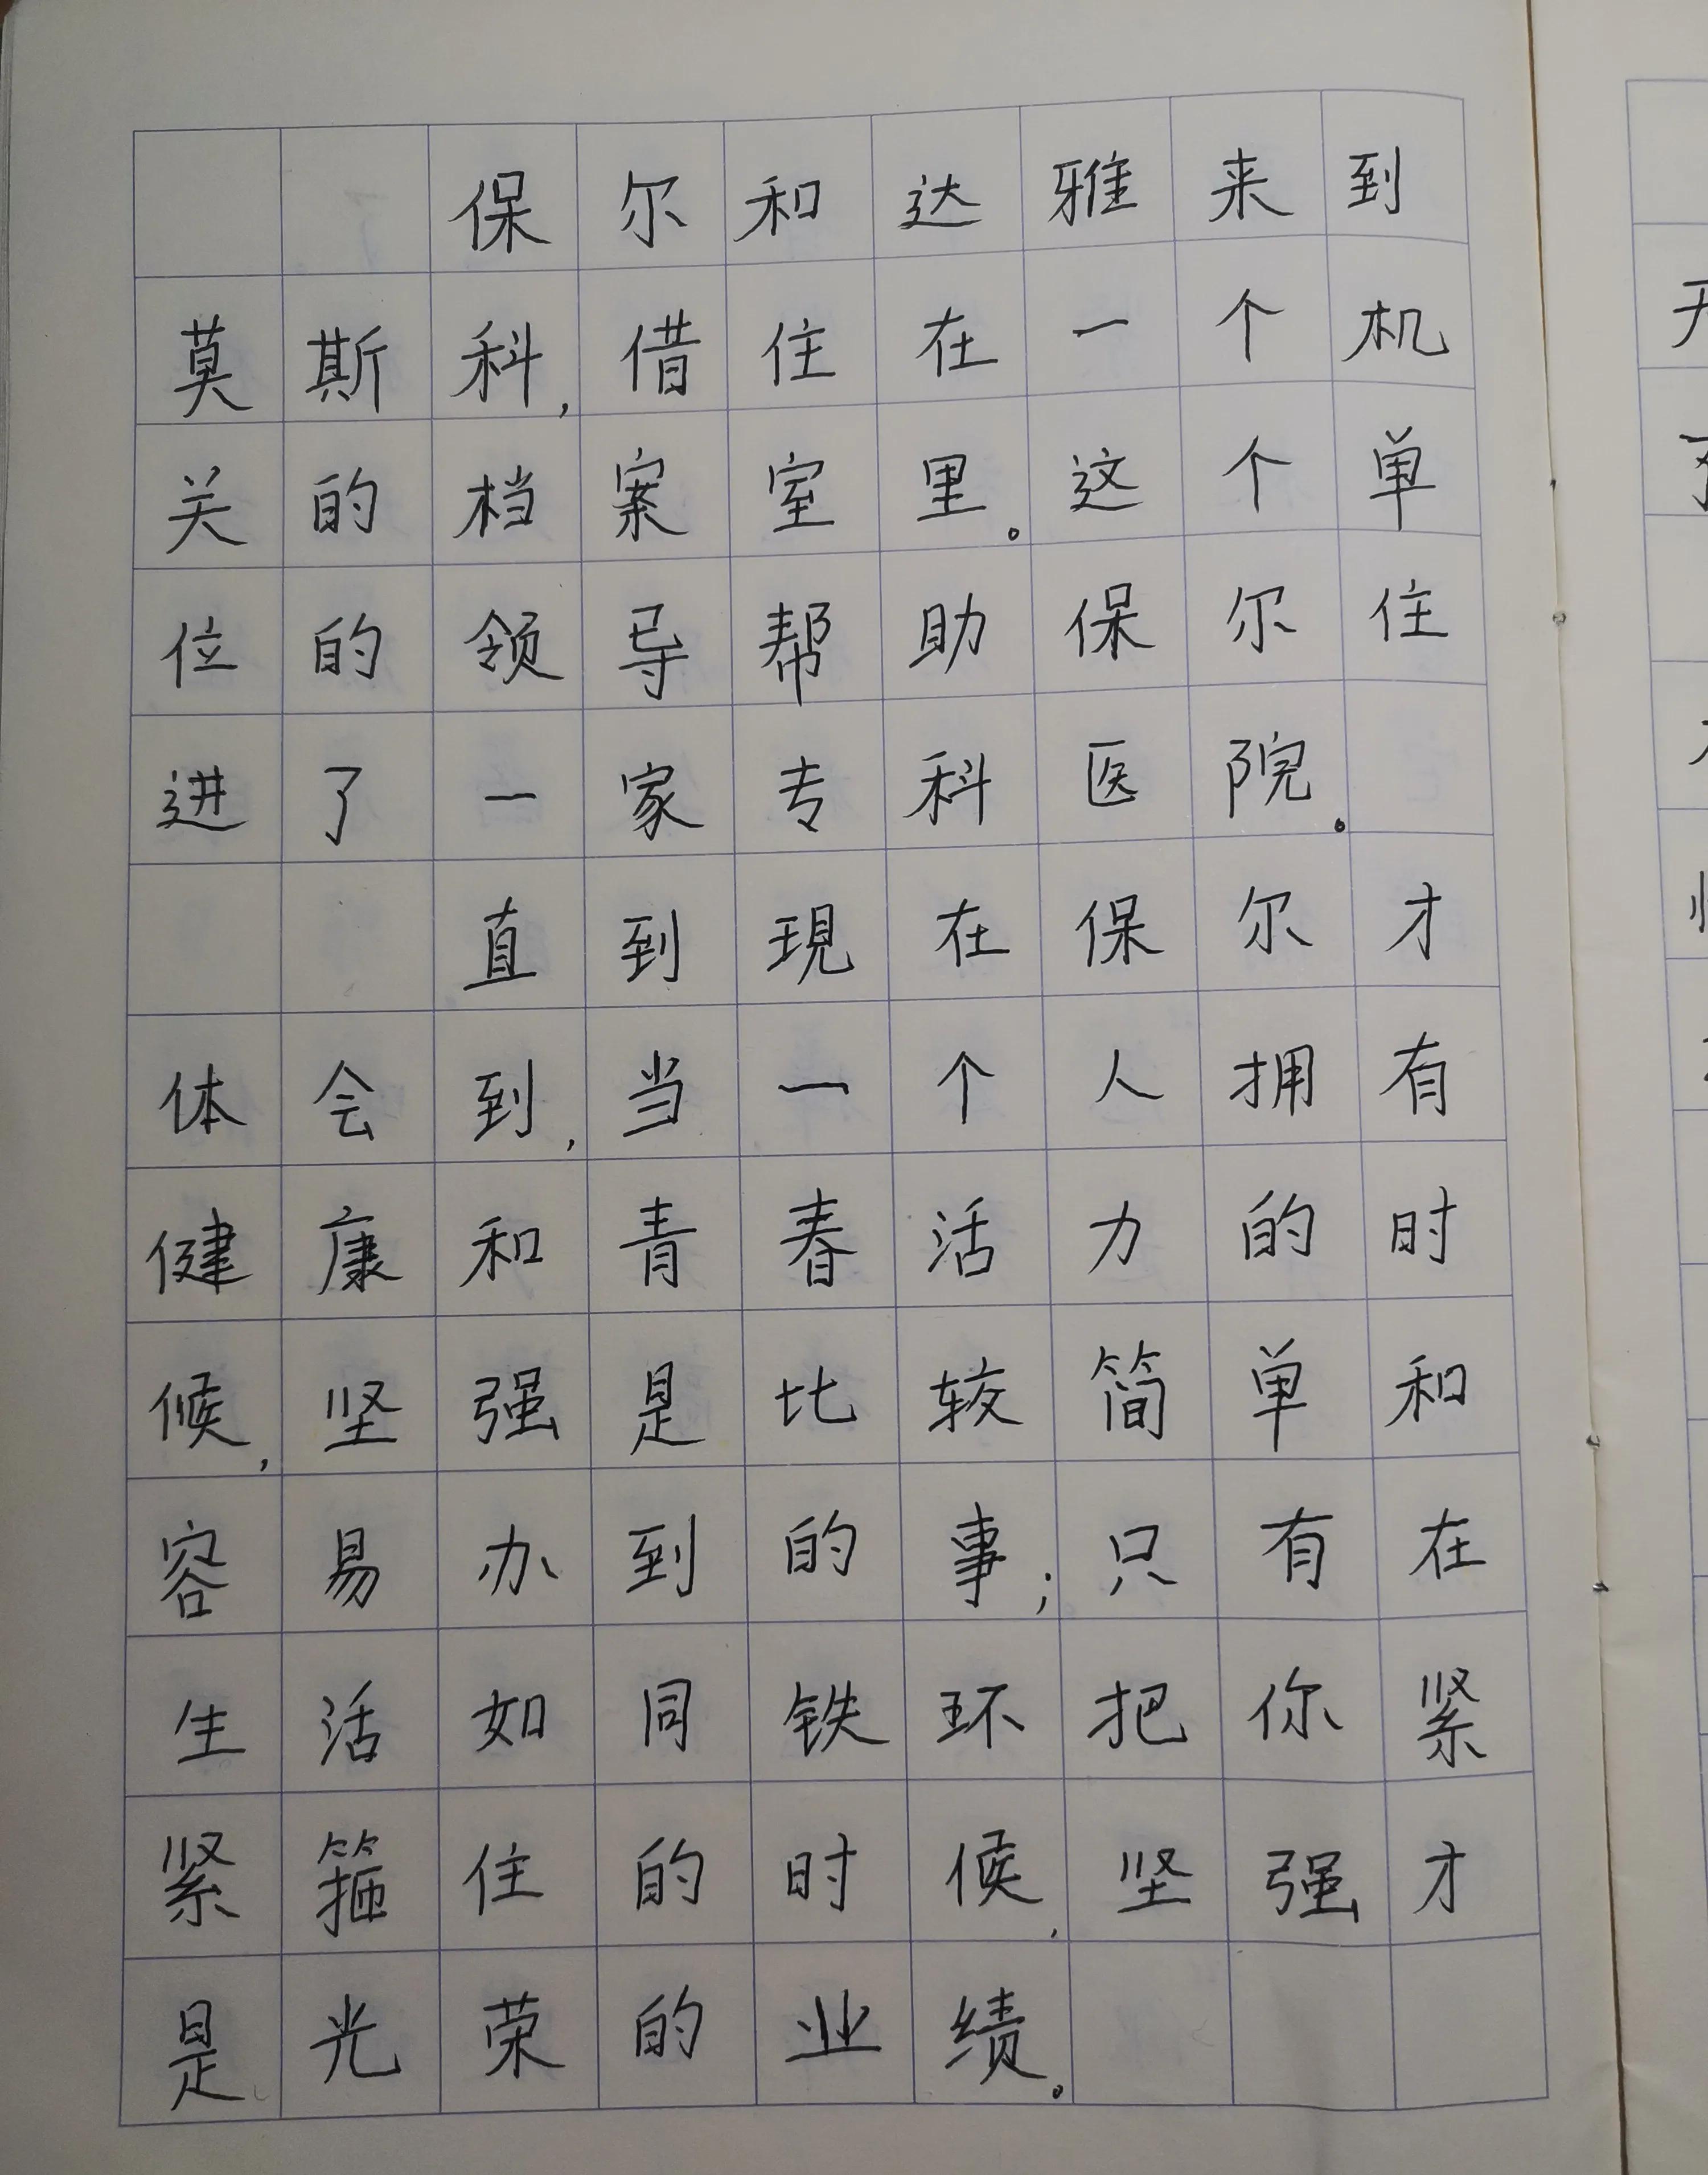 保尔和达雅来到
莫斯科,借住在一个机
关的档案室里。这个单
位的领导帮助保尔住
进了一家专科医院。
直到现在保尔才
体会到,当一个人拥有
健康和青春活力的时
候,坚强是比较简单和
容易办到的事;只有在
生活如同铁环把你紧
紧箍住的时候,坚强才
是光荣的业绩。